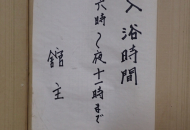 入浴時間
六時〜夜十一時まで
館主